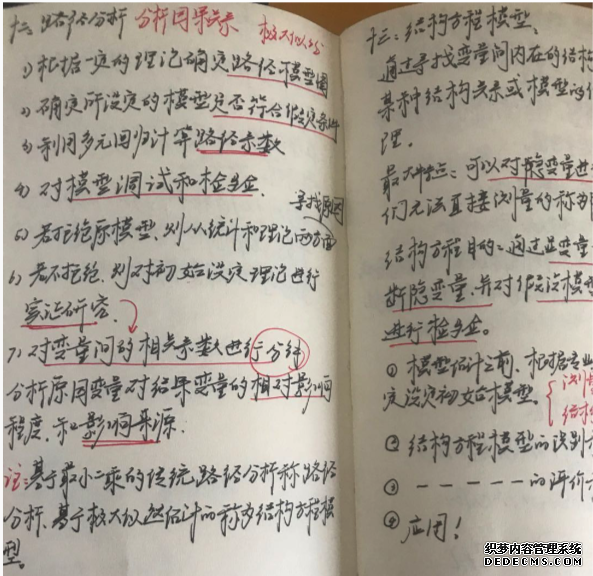 十二、路径分析 分析因果关系 极大似然
1)根据一定的理论确定路径模型图
2)确定所设定的模型是否符合假定条件
3)利用多元回归计算路径系数
4)对模型调试和检验
寻找原因
5)若拒绝原模型,则从统计和理论两方面
6)若不拒绝,则对初始设定理论进行
实证研究。
7)对变量间的相关系数进行分解
分析原因变量对结果变量的相对影响
程度,和影响来源.
注:基于最小二乘的传统路径分析称路径
分析、基于极大似然估计而称为结构方程模
型。
十三:结构方程模型、
通过寻找变量间内在的结构
某种结构关系或模型的
理。
最大特点:可以对隐变量进
们无法直接测量的称为
结构方程目的:通过显变量
断隐变量、并对假设模型
进行检验。
①模型估计之前,根据专业
定设定初始模型。
测
结构
②结构方程模型的识别
③ — — — — — 的评价
④应用!
织梦内容管理系统
DEDECMS.COM